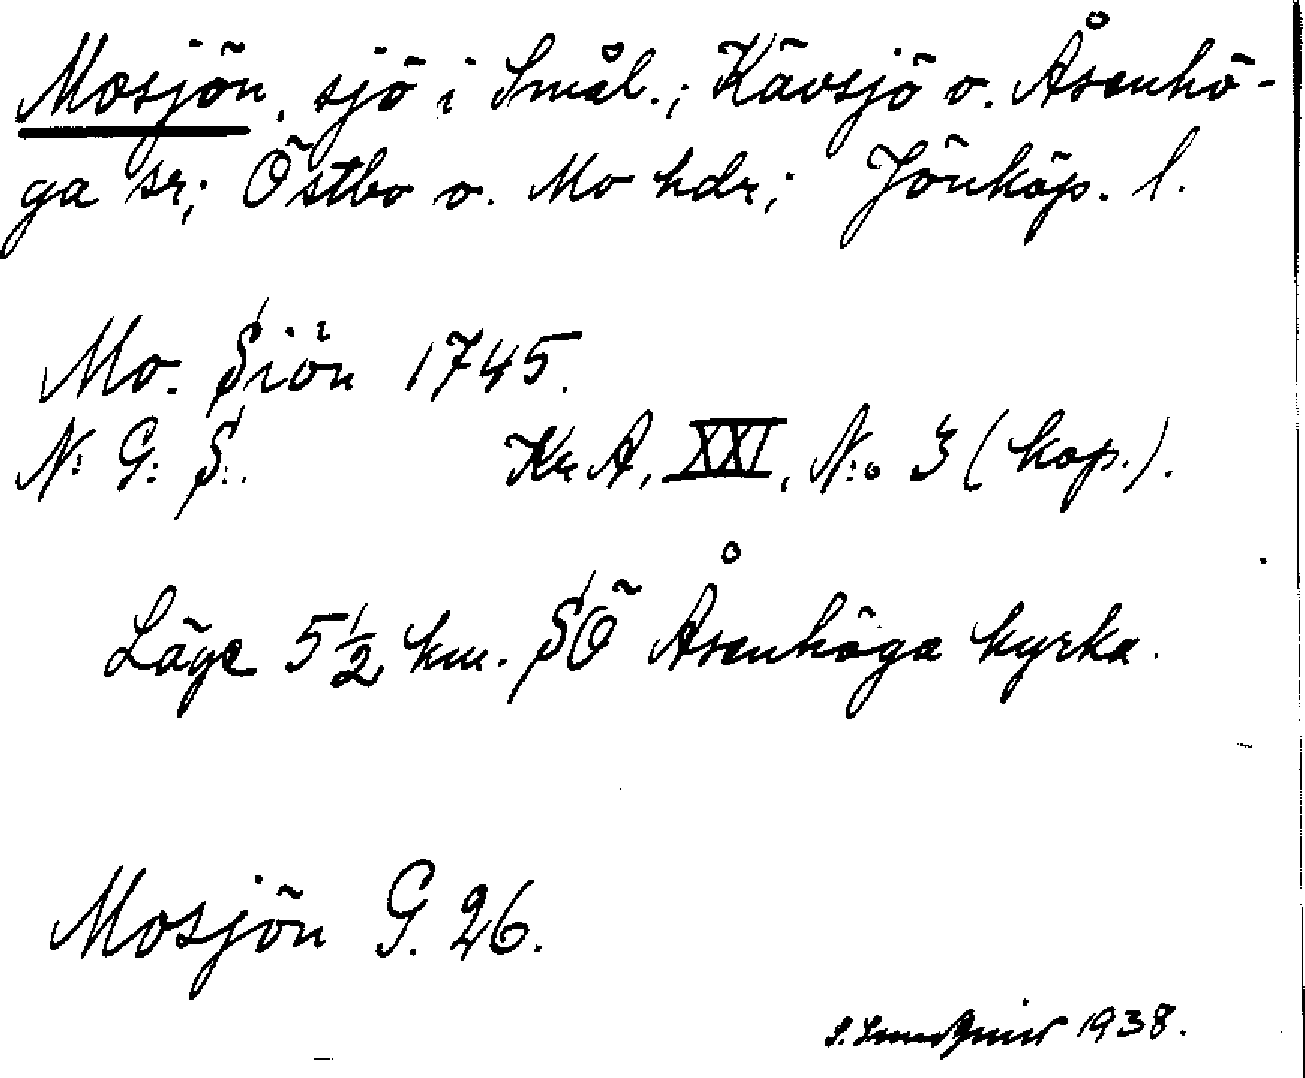 Mosjön, sjö i Smål.; Kävsjö o. Åsenhö-
ga sr; Östbo o. Mo hdr; Jönköp. l.
Mo. Siön 1745.
N: G: S:. Kr. A, XXI, N:o 3 (kop.).
Läge 5 1/2 km. SÖ Åsenhöga kyrka.
Mosjön G. 26.
S. 1938.